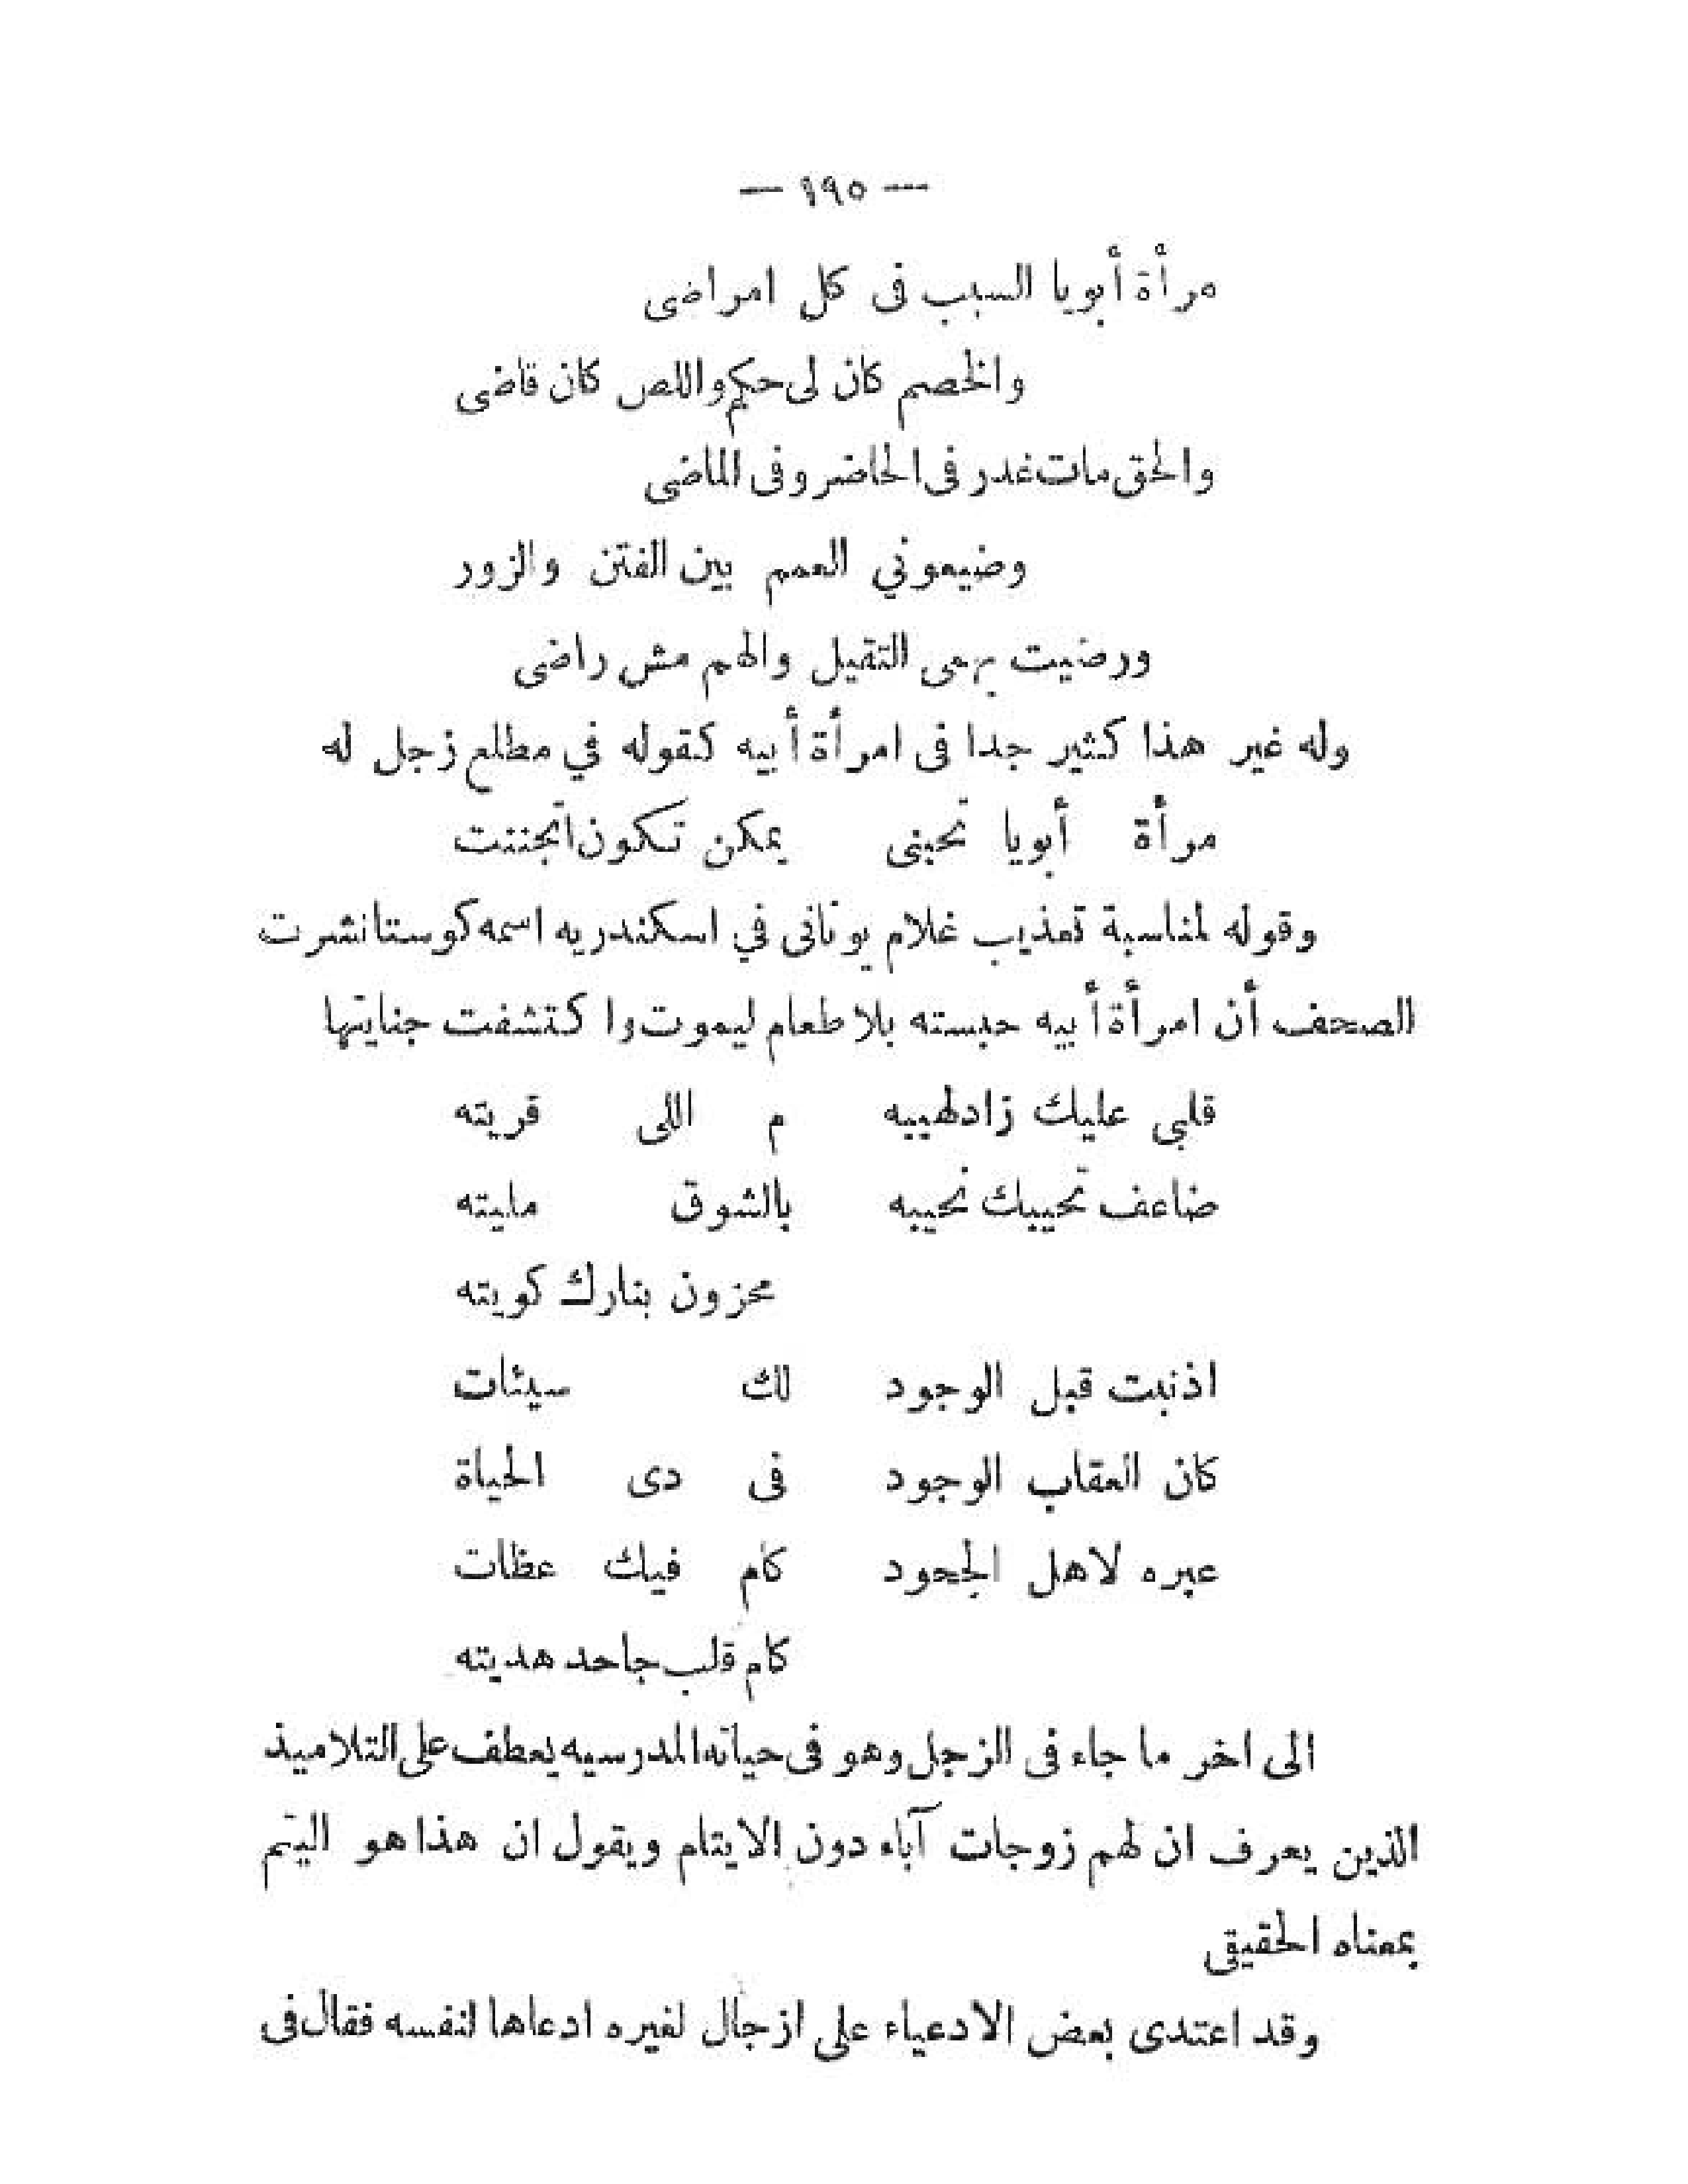 — ١٩٥ —
مرأة أبويا السبب فى كل امراضى
والخصم كان لى حكم واللص كان قاضى
والحق مات غدر فى الحاضر وفى الماضى
وضيعوني العمم بين الفتن والزور
ورضيت بهمى التقيل والهم مش راضى
وله غير هذا كثير جدا فى امرأة أبيه كقوله في مطلع زجل له
مرأة أبويا تحبنى يمكن تكون اتجننت
وقوله لمناسبة تعذيب غلام يونانى في اسكندريه اسمه كوستا نشرت
الصحف أن امرأة أبيه حبسته بلا طعام ليموت وا كتشفت جنايتها
قلبي عليك زاد لهيبه م اللى قريته
ضاعف نحيبك نحيبه بالشوق مليته
محزون بنارك كويته
اذنبت قبل الوجود لك سيئات
كان العقاب الوجود فى دى الحياة
عبره لاهل الجحود كام فيك عظات
كام قلب جاحد هديته
الى اخر ما جاء فى الزجل وهو فى حياته المدرسيه يعطف على التلاميذ
الذين يعرف ان لهم زوجات آباء دون الايتام ويقول ان هذا هو اليتم
بمعناه الحقيقى
وقد اعتدى بعض الادعياء على ازجال لغيره ادعاها لنفسه فقال فى